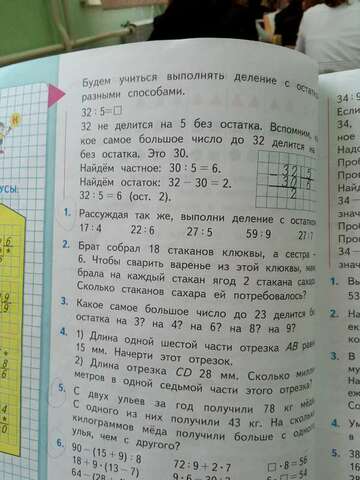 Будем учиться выполнять деление с остатком
разными способами.
32 : 5 = □
32 не делится на 5 без остатка. Вспомним, ка-
кое самое большое число до 32 делится на
без остатка. Это 30.
Найдём частное: 30 : 5 = 6.
Найдём остаток: 32 − 30 = 2.
32 : 5 = 6 (ост. 2).
32 5
− 30 6
2
1. Рассуждая так же, выполни деление с остатком
17 : 4 22 : 6 27 : 5 59 : 9 27 : 7
2. Брат собрал 18 стаканов клюквы, а сестра -
6. Чтобы сварить варенье из этой клюквы, мама
брала на каждый стакан ягод 2 стакана сахара.
Сколько стаканов сахара ей потребовалось?
3. Какое самое большое число до 23 делится без
остатка на 3? на 4? на 6? на 8? на 9?
4. 1) Длина одной шестой части отрезка AB равна
15 мм. Начерти этот отрезок.
2) Длина отрезка CD 28 мм. Сколько милли-
метров в одной седьмой части этого отрезка?
5. С двух ульев за год получили 78 кг мёда.
С одного из них получили 43 кг. На сколько
килограммов мёда получили больше с одного
улья, чем с другого?
6. 90 − (15 + 9) : 8 72 : 9 + 2 · 7 □ · 8 = 56
18 + 9 · (13 − 7)